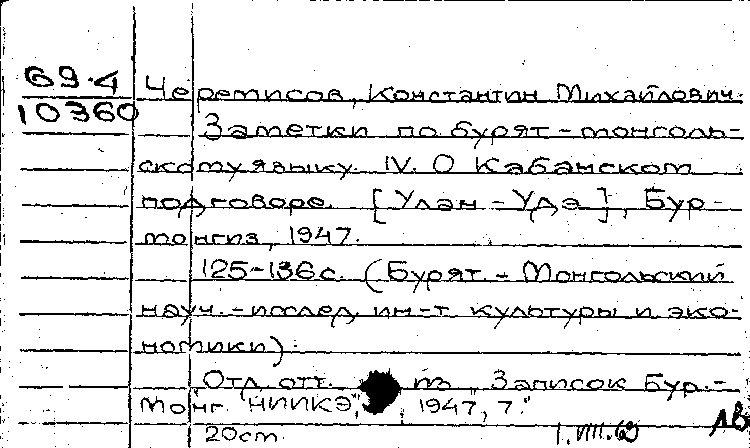 69-4
10360
Черемисов, Константин Михайлович.
Заметки по бурят-монголь-
скому языку. IV. О Кабанском
подговоре. [Улан-Удэ], Бур-
монгиз, 1947.
125-136 с. (Бурят.-Монгольский
науч.-исслед. ин-т культуры и эко-
номики).
Отд. отт. из "Записок Бур.-
Монг. НИИКЭ", 1947, 7."
20 см.
1.VIII.62